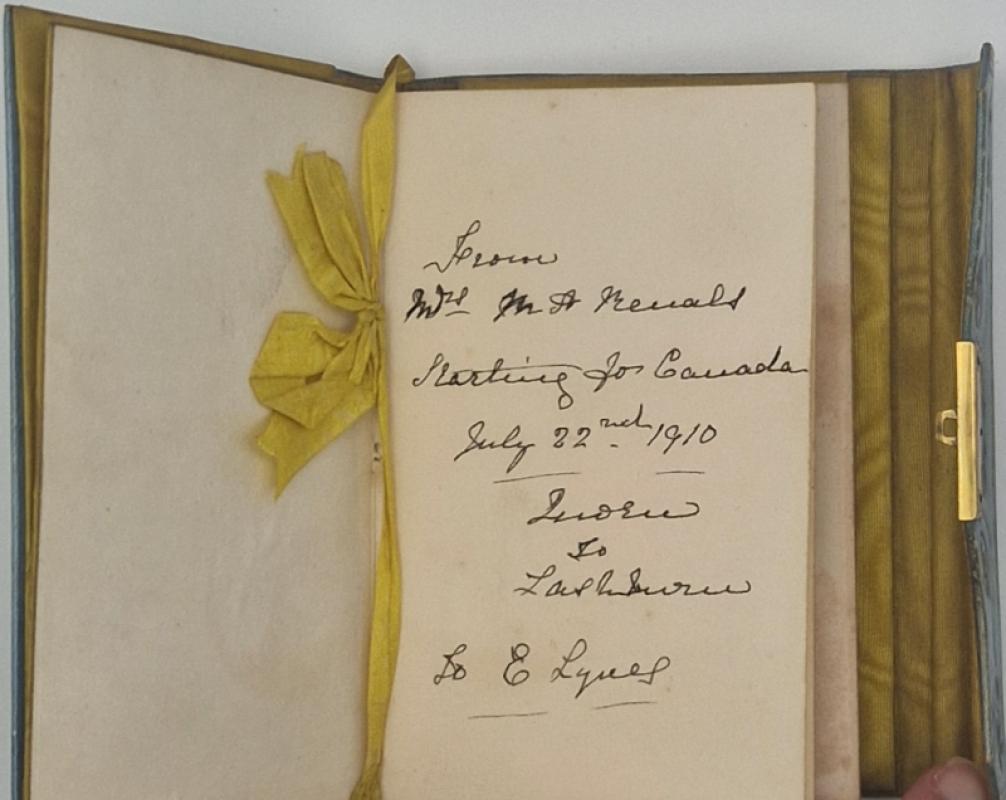 From
Mrs M A Renals
Starting for Canada
July 22nd 1910
to
Lashburn
To E Lynes